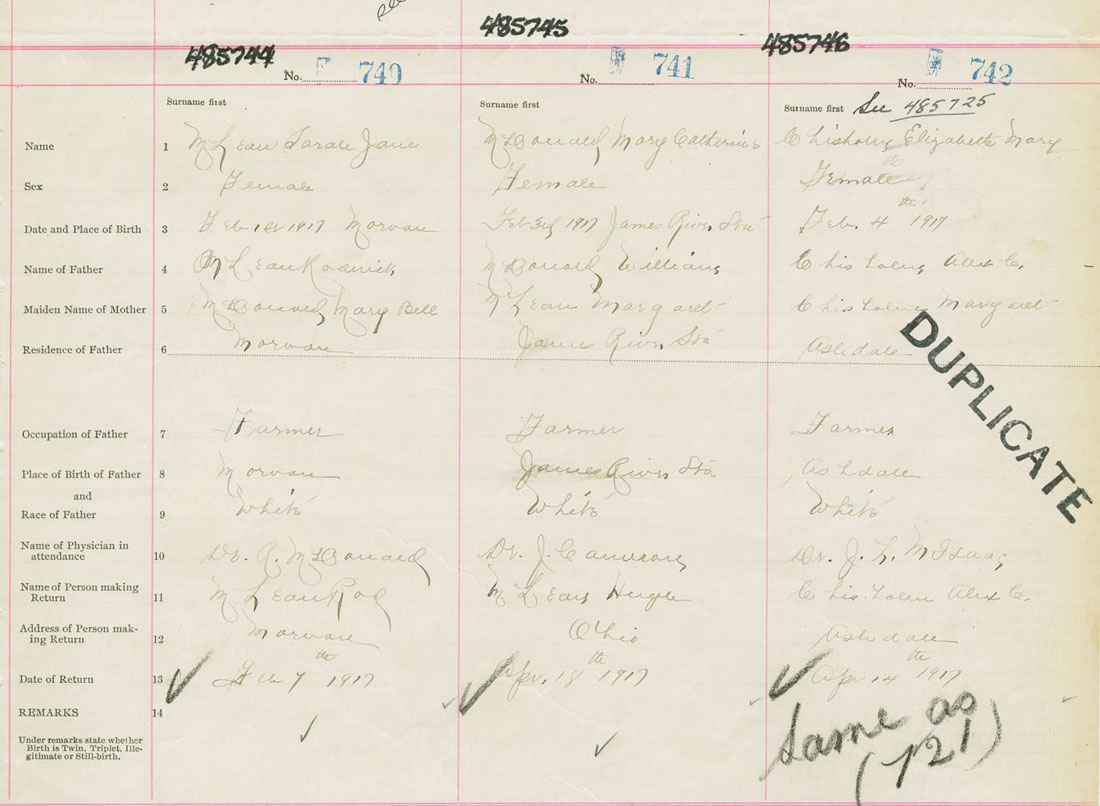 485744 485745 485746
No. 740 No. 741 No. 742
Surname first Surname first Surname first See 485725
Name 1 McLean Sarah Jane McDonald Mary Catherine Chisholm Elizabeth Mary
Sex 2 Female Female Female
Date and Place of Birth 3 Feb 1st 1917 Morvan Feb 3rd 1917 James River Sta Feb. 4th 1917
Name of Father 4 McLean Roderick McDonald William Chisholm Alex C.
Maiden Name of Mother 5 McDonald Mary Bell McLean Margaret Chisholm Margaret
Residence of Father 6 Morvan James River Sta Ashdale
DUPLICATE
Occupation of Father 7 Farmer Farmer Farmer
Place of Birth of Father 8 Morvan James River Sta Ashdale
and
Race of Father 9 White White White
Name of Physician in
attendance 10 Dr. A. McDonald Dr. J. Cameron Dr. J. L. McIsaac
Name of Person making
Return 11 McLean Rod McLean Hugh Chisholm Alex C.
Address of Person mak-
ing Return 12 Morvan Ohio Ashdale
Date of Return 13 7th 1917 Apr. 18th 1917 Apr 14th 1917
REMARKS 14
Same as
(721)
Under remarks state whether
Birth is Twin, Triplet, Ille-
gitimate or Still-birth.